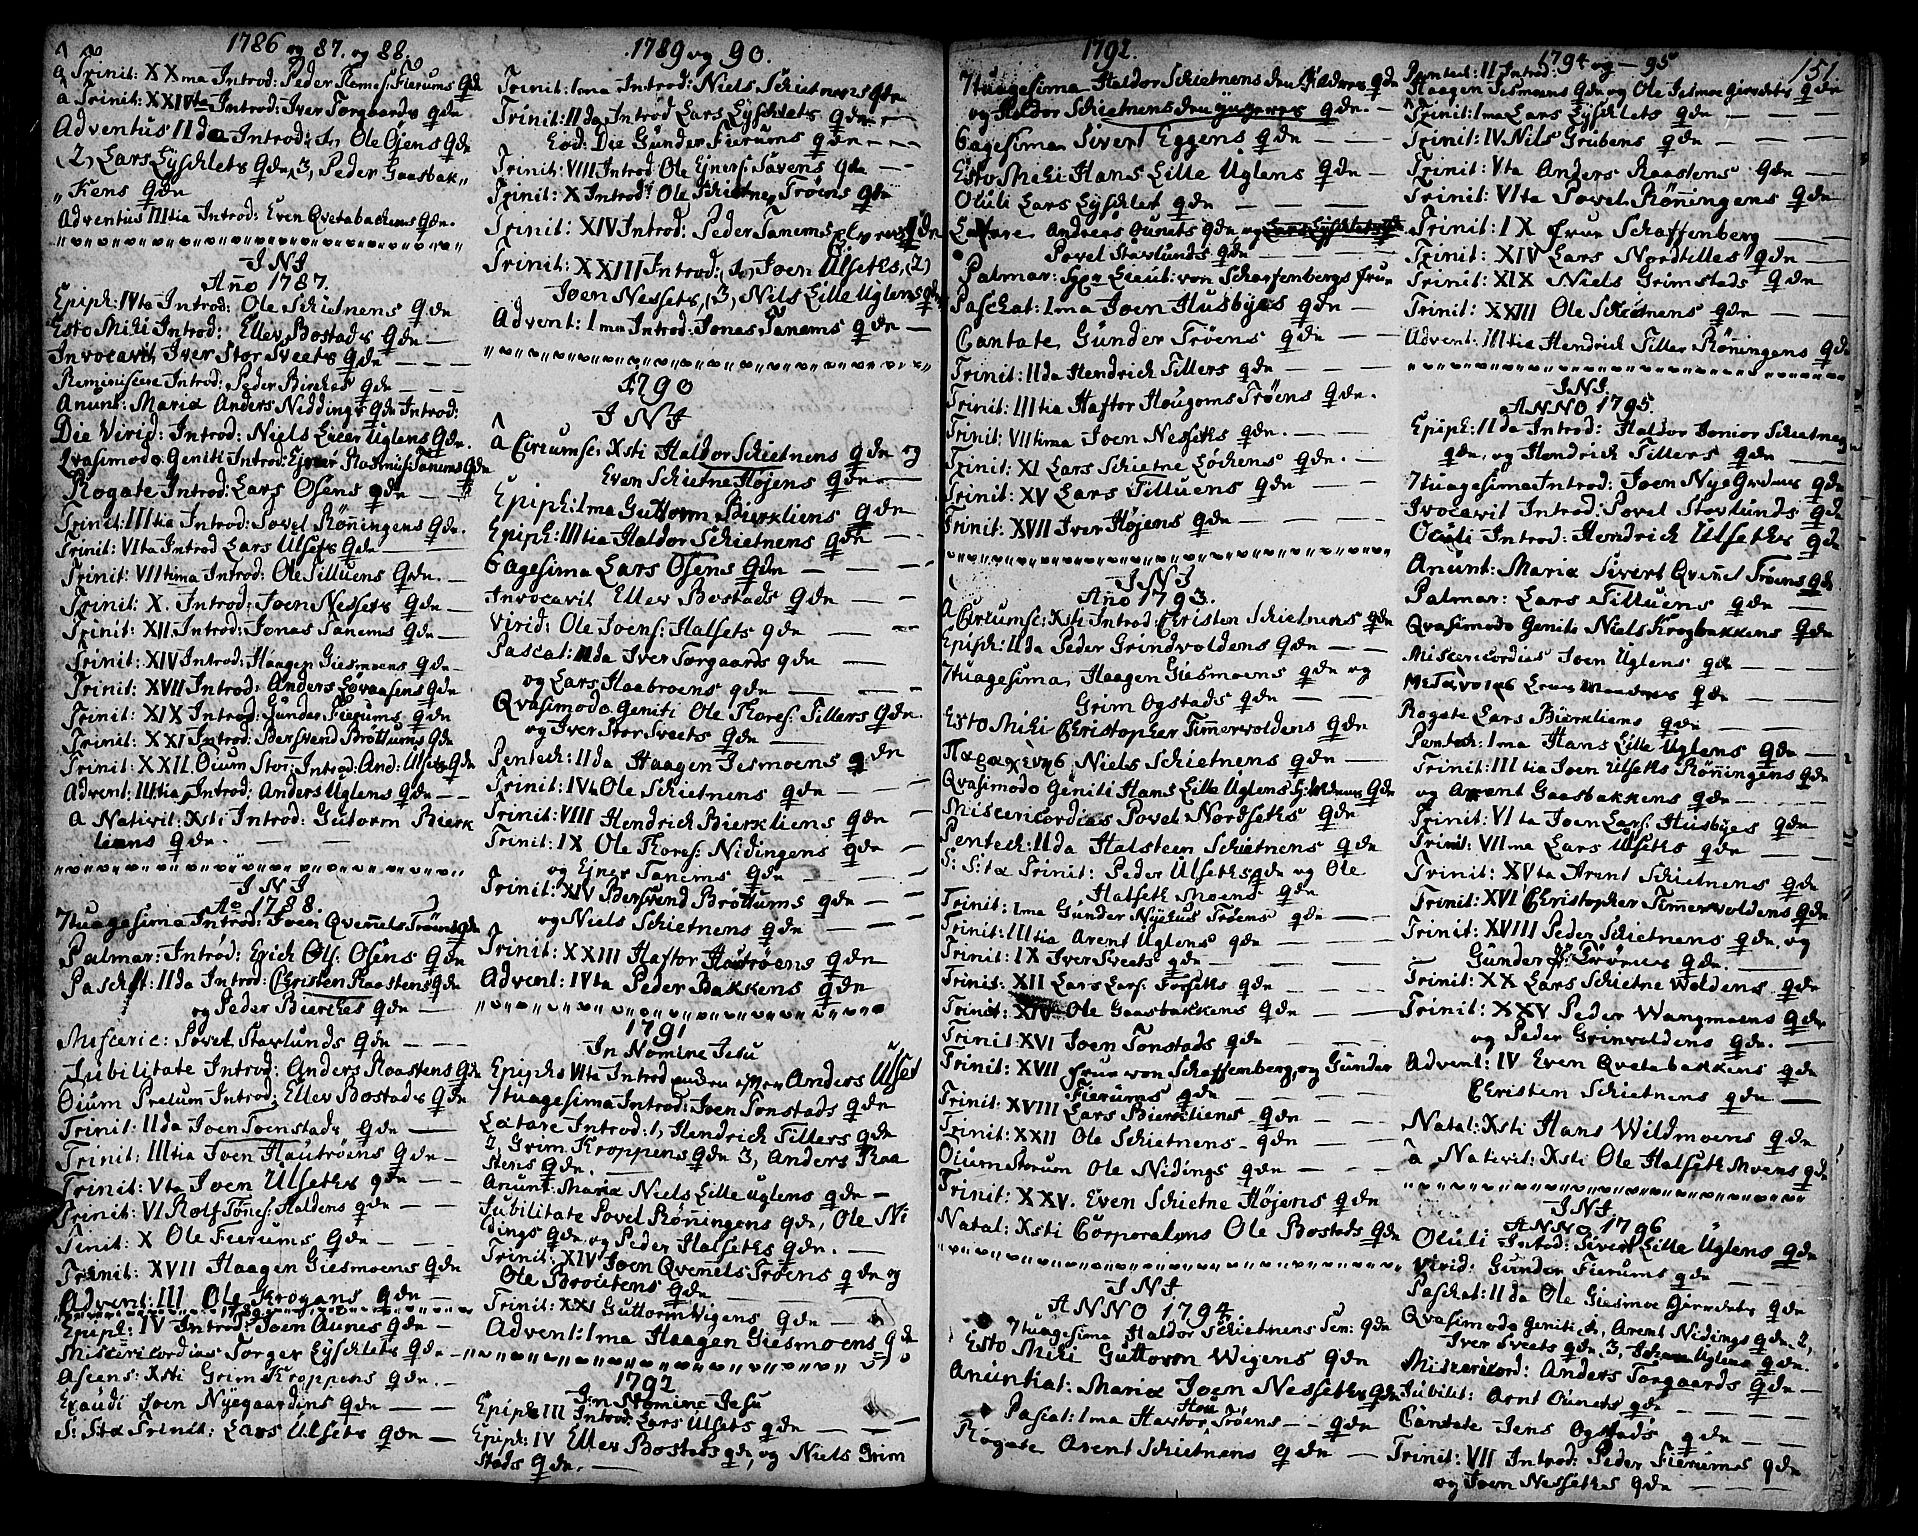 1786 og 87. og 88.
â Trinit: XXma Introd: Peder Fierums Qde
â Trinit: XXIVta Introd: Iver Torgaards Qde
Adventus IIda Introd: 1, Ole Osens Qde
(2) Lars Lyschlets Qde 3, Peder Gaasbak„
„kens Qde
Adventus IIItia Introd: Even Qvetabackens Qde.
I N I
Año 1787.
Epiph: IVta Introd: Ole Schietnens Qde
Esto Mihi Introd: Ellev Bostads Qde
Invocavit Iver Stor Sveets Qde
Reminiscere Introd: Peder Birches Qde
Anunt: Maria Anders Niddings Qde Introd:
Die Virid: Introd: Niels Uglens Qde
Qvasimodo Geniti Introd: Tanems Qde
Rogate Introd: Lars Osens Qde
Trinit: IIItia Introd: Povel Röningens Qde
Trinit: VIta Introd Lars Ulsets Qde
Trinit: VIItima Introd: Ole Tilluens Qde.
Trinit: X. Introd: Joen Nessets Qde
Trinit: XII Introd: Jonas Tanems Qde
Trinit: XIV Introd: Haagen Giesmoens Qde
Trinit: XVII Introd: Anders Løvaasens Qde
Trinit: XIX Introd: Gunder Fierums Qde
Trinit: XXI Introd: Bersvend Bröttums Qde
Trinit: XXII. Oium Stor: Introd: And: Ulsets Qde
Advent: IIItia Introd: Anders Uglens Qde
a Nativit: Xsti Introd: Gutorm Bierk
liens Qde.
I N I
Aō 1788.
7tuagesima Introd: Joen Qvenels Trøens Qde
Palmar: Introd: Erich Ols: Osens Qde
Paschat: IIda Introd: Christen Raastens Qde
og Peder Bierches Qde
Miseric: Povel Stavlunds Qde
Jubilitate Introd: Anders Raastens Qde
Oium Prelum Introd: Ellev Bostads Qde
Trinit: IIda Joen Toenstads Qde
Trinit: IIItia Joen Hautröens Qde
Trinit: Vta Joen Ulseths Qde
Trinit: VI Rolf Tönes: Haldens Qde
Tinit: X Ole Fierums Qde
Trinit: XVII Haagen Giesmoens Qde
Advent: III Ole Krogans Qde
1789
Epiph: IV Introd: Joen Aunes Qde
Misericordias Torger Lyschlets Qde
Ascens: Xsti Grim Kroppens Qde.
Exaudi Joen Nyegaardens Qde
S: Sta Trinit: Lars Ulsets Qde
1789 og 90.
Trinit: Ima Introd: Niels Schietnens Qde
Trinit: IIda Introd Lars Lyschlets Qde
Eod: Die Gunder Fierums Qde
Trinit: VIII Introd: Ole Ejners: Tavens Qde
Trinit: X Introd: Ole Schietne Trøens Qde
Trinit: XIV Introd: Peder Tanems Qde
Trinit: XXIII Introd: (1,) Joen Ulseths, (2)
Joen Nessets, (3, Nils Lille Uglens Qde
Advent: Ima Introd: Jonas Tanems Qde
1790
I N I
â Circumsc: Xsti Haldor Schietnens Qde og
Even Schietne Højens Qde
Epiph: Ima Guttorm Bierkliens Qde
Epiph: IIItia Haldor Schietnens Qde
6agesima Lars Osens Qde
Invocavit Ellev Bostads Qde
Virid: Ole Joens: Halsets Qde
Pascat: IIda Iver Torgaards Qde
og Lars Haabroens Qde
Qvasimodo Geniti Ole Thores: Tillers Qde.
og Iver Stor Sveets Qde
Pentech: IIda Haagen Jesmoens Qde
Trinit: IVta Ole Schietnens Qde
Trinit: VIII Hendrich Bierkliens Qde
Trinit: IX Ole Thores: Nidingens Qde
og Ejner Tanems Qde
Trinit: XIV Bersvend Bröttums Qde
og Niels Schietnens Qde
Trinit: XXIII Haftor Hautröens Qde
Advent: IVta Peder Bakkens Qde
1791
In Nomine Jesu
Epiph: VIta Introd Anders Ulset
7tuagesima Introd: Joen Tonstads Qde
Lætare Introd: 1, Hendrich Tillers Qde
2, Grim Kroppens Qde 3, Anders Raa
stens Qde.
Anunt: Maria Niels Lille Uglens Qde
Jubilitate Povel Röningens Qde, Ole Ni
dings Qde og Peder Halseths Qde.
Trinit: XIV Joen Qvenels Trøens Qde og
Ole Broutens Qde
Trinit: XXI Guttorm Wigens Qde
Advent: Ima Haagen Giesmoens Qde
1792
In Nomine Jesu
Epiph III Introd: Lars Ulsets Qde
Epiph: IV Ellev Bostads Qde, og Niels Grim
stads Qde.
1792.
7tuagesima Haldor Schietnens den Ældres Qde
og Haldor Schietnens den yngeres Qde.
6agesima Sivert Eggens Qde
Esto Mihi Hans Lille Uglens Qde
Oculi Lars Lyschlet Qde
Lætare Andreas Ounets Qde og Lars Lyschlets Qde
Povel Stavlunds Qde
Palmar: Herr Lieut: von Schaffenbergs frue
Paschat: Ima Joen Husbyes Qde
Cantate, Gunder Trøens Qde
Trinit: IIda Hendrich Tillers Qde
Trinit: IIItia Haftor Hougoms Trøens Qde.
Trinit: VIItima Joen Nesseths Qde.
Trinit: XI Lars Schietne Løchens Qde.
Trinit: XV Lars Tilluens Qde
Trinit: XVII Iver Højens Qde
I N I
Año 1793.
â Circumsc: Xsti Introd: Christen Schietnens Qde
Epiph: IIda Peder Grindvoldens Qde
7tuagesima, Haagen Giesmoens Qde og
Grim Ogstads Qde
Esto Mihi Christopher Timervoldens Qde
Παρασχευης Niels Schietnens Qde
Qvasimodo Geniti Hans Lille Uglens Qde
Misericordias Povel Nordseths Qde
Pentech: IIda Halsteen Schietnens Qde
S: Sta Trinit: Peder Ulseths Qde og Ole
Halseth Moens Qde
Trinit: Ima Gunder Nyehus Trøens Qde
Trinit: IIItia Arent Uglens Qde
Trinit: IX Iver Sveets Qde
Trinit: XII Lars Lars: Forseths Qde
Trinit: XIV Ole Gaasbakkens Qde
Trinit: XVI Joen Tonstads Qde
Trinit: XVII frue von Schaffenberg, og Gunder
Fierums Qde
Trinit: XVIII Lars Bierkliens Qde
Trinit: XXII Ole Schietnens Qde
Oium Storum Ole Nidings Qde
Trinit: XXV. Even Schietne Højens Qde
Natal: Xsti Corporalens Ole Bostads Qde
I N I
ANNO 1794
7tuagesima Haldor Schietnens Sen: Qde
Esto Mihi Guttorm Wigens Qde
Anuntiat: Maria Joen Nesseths Qde
Pascat: Ima Haftor Hou Trøens Qde
Rogate Arent Schietnens Qde
1794 og 95
151.
Pentech: II Introd:
Haagen Jesmoens Qde og Ole Jesmoe Gierdets Qde
Trinit: Ima Lars Lyschlets Qde
Trinit: IV Nils Grubens Qde
Trinit: Vta Anders Raastens Qde
Trinit: VIta Povel Röningens Qde
Trinit: IX frue Schaffenberg
Trinit: XIV Lars Nordtilles Qde
Trinit: XIX Niels Grimstads Qde
Trinit: XXIII Ole Schietnens Qde
Advent: IIItia Hendrich Tiller Röningens Qde
I N I.
ANNO 1795.
Epiph: IIda Introd: Haldor Junior Schietnens
Qde, og Hendrich Tillers Qde
7tuagesima Introd: Joen Nye Qde
Ivocavit Introd: Povel Stavlunds Qde
Oculi Introd: Hendrich Ulseths Qde
Anunt: Maria Sivert Qvenel Trøens Qde
Palmar: Lars Tilluens Qde
Qvasimodo Geniti Niels Krogbakkens Qde
Misericordias Joen Uglens Qde
Qde
Rogate Lars Bierkliens Qde
Pentech: Ima Hans Lille Uglens Qde
Trinit: IIItia Joen Ulseths Röningens Qde
og Arent Gaasbakkens Qde
Trinit: VIta Joen Lars: Husbyes Qde
Trinit: VIIme Lars Ulseths Qde
Trinit: XVta Arent Schietnens Qde
Trinit: XVI Christopher Timervoldens Qde
Trinit: XVIII Peder Schietnens Qde, og
Gunder Qde.
Trinit: XX Lars Schietne Woldens Qde
Trinit: XXV Peder Wangmoens Qde
og Peder Grinvoldens Qde.
Advent: IV Even Qvetabakkens Qde
Christen Schietnens Qde
Natal: Xsti Hans Wildmoens Qde
â Nativit: Xsti Ole Halseth Moens Qde
I N I
ANNO 1796
Oculi Introd: Sivert Lille Uglens Qde
Virid: Gunder Fierums Qde
Paschat: IIda Ole Giesmoe Gierdets Qde
Qvasimodo Geniti 1, Arent Nidings Qde 2,
Iver Sveets Qde, 3, Uglens Qde.
Misericord: Anders Torgaards Qde
Jubilit: Arnt Ounets Qde
Cantate Jens Ogstads Qde
Trinit: VII Introd: Peder Fierums Qde
og Joen Nesseths Qde